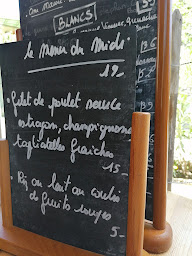 BLANCS
Le Menu du Midi
19-
• Filet de poulet sauce
estragon, champignons
tagliatelles fraîches
15-
• Riz au lait au coulis
de fruits rouges
5-